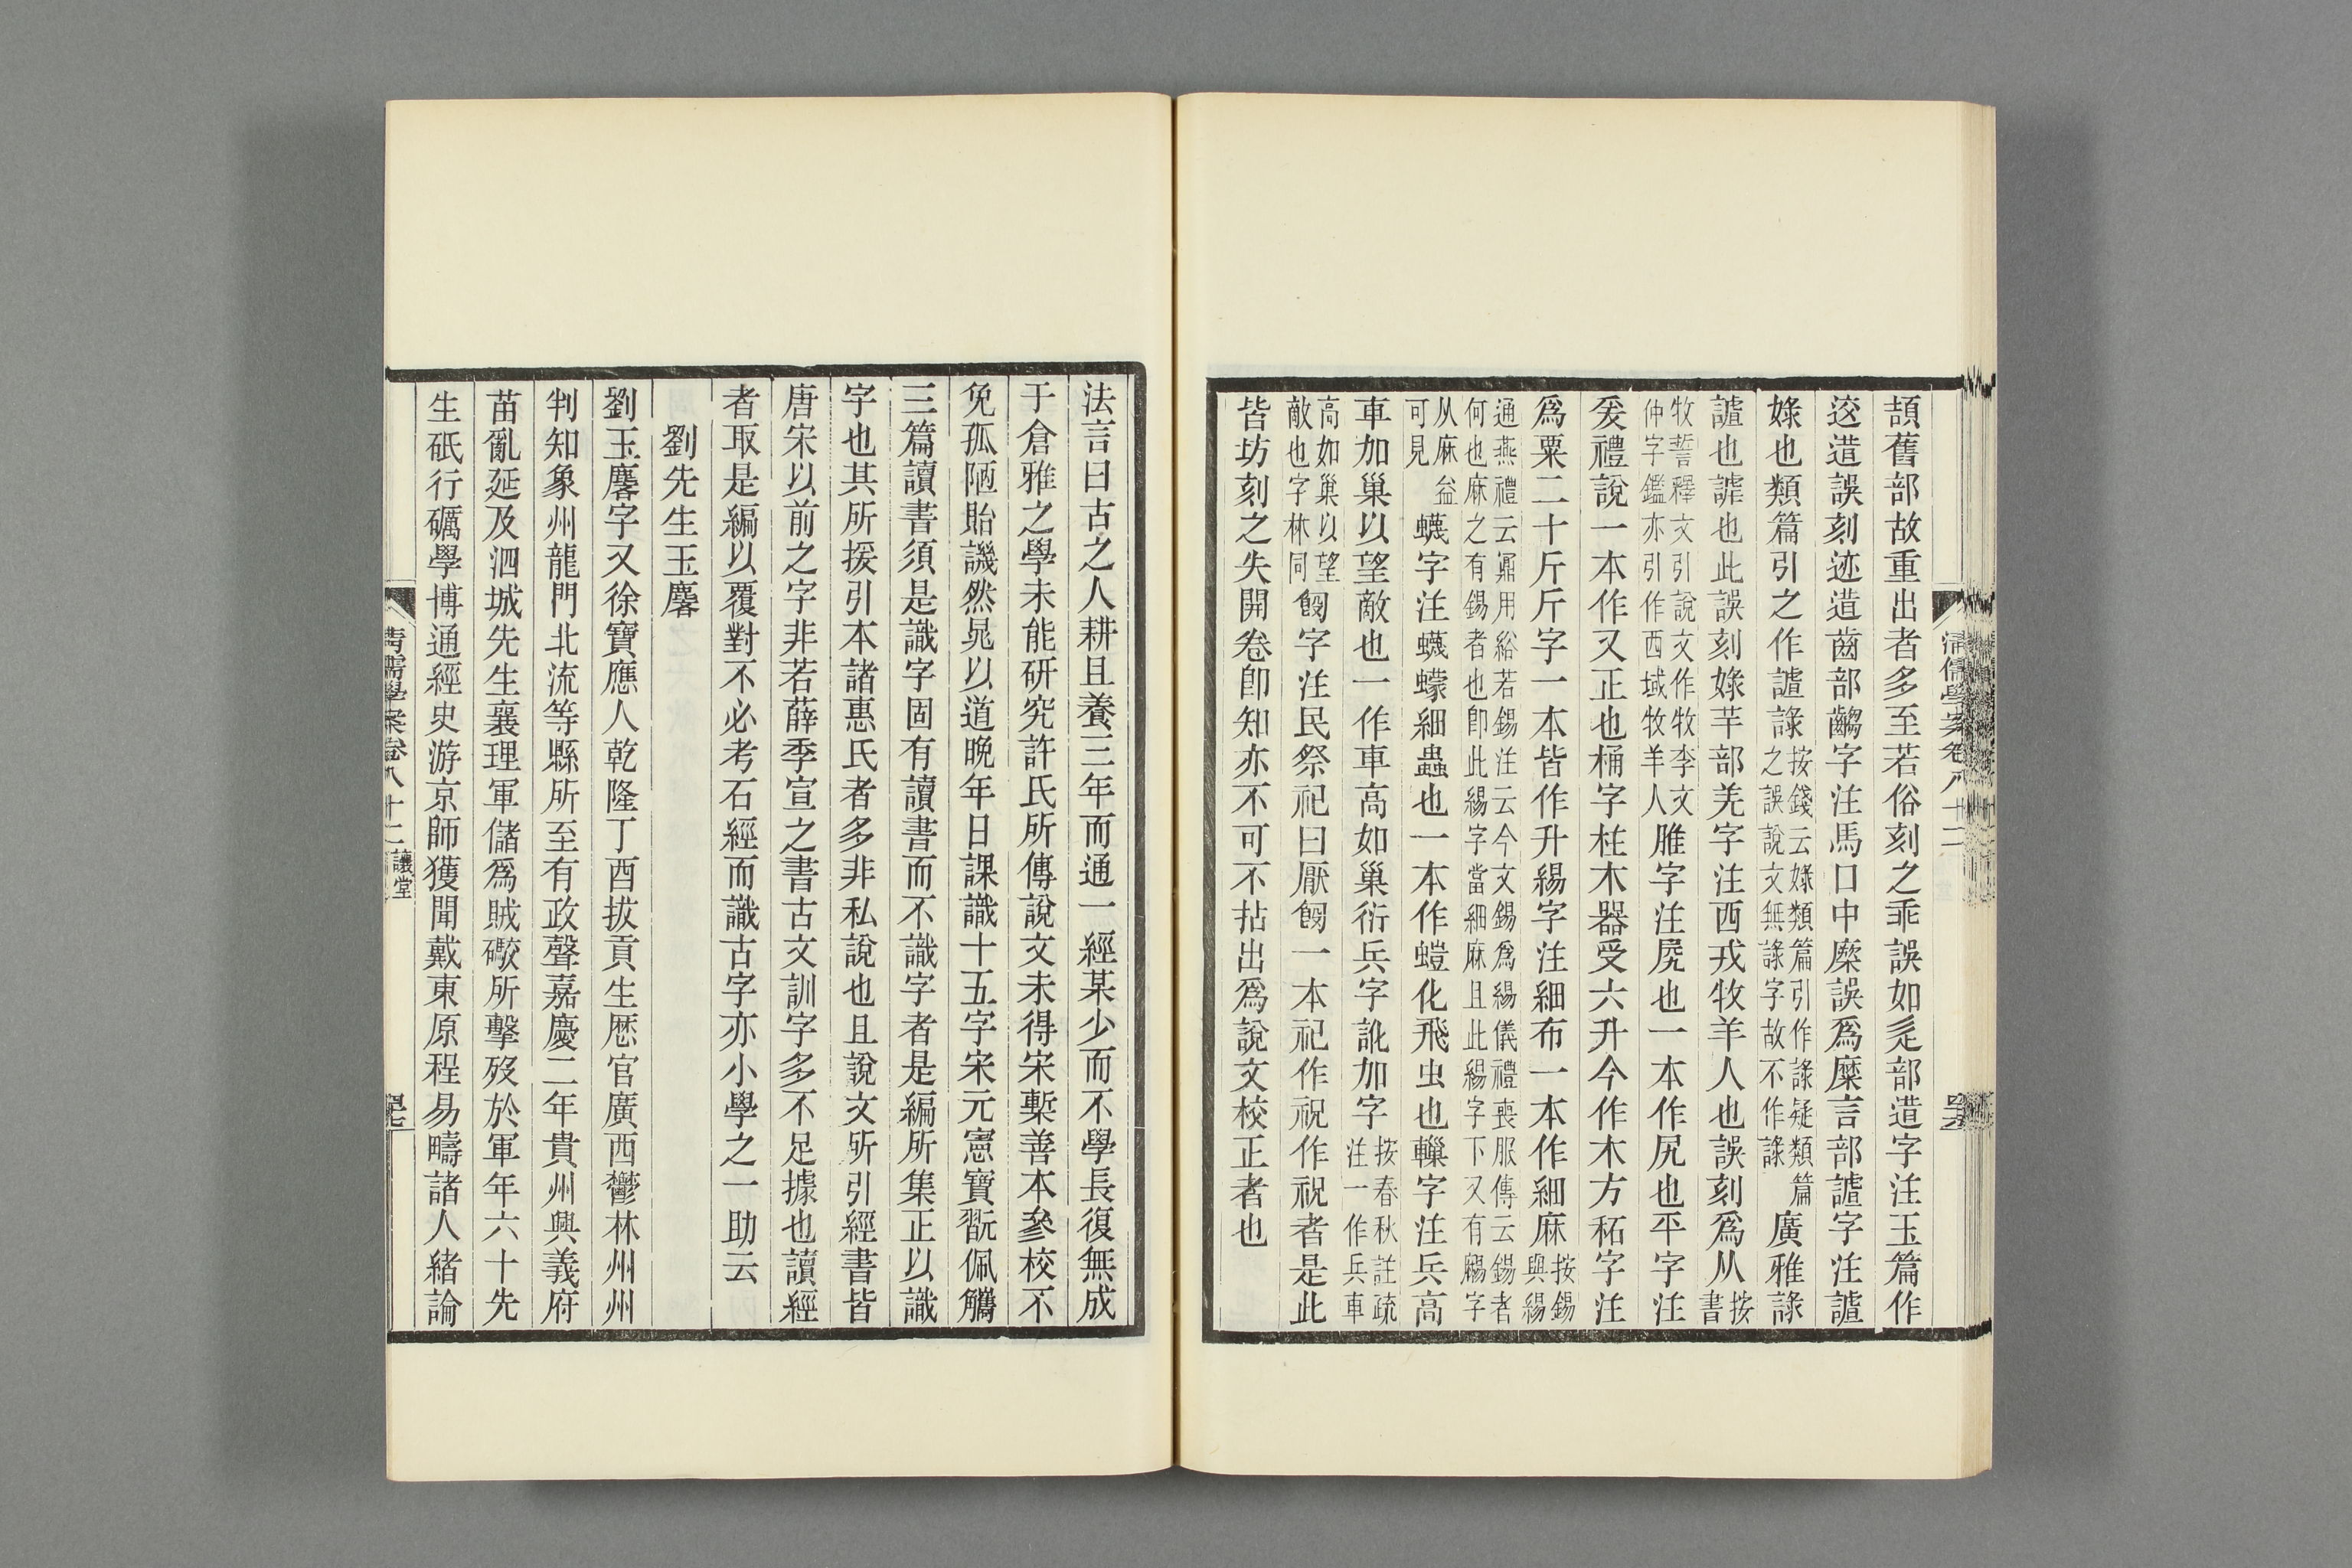 頡舊部故重出者多至若俗刻之乖誤如辵部造字注玉篇作
迻造誤刻迹造齒部齺字注馬口中橜誤爲糜言部謯字注謯
娽也類篇引之作謯諑按錢云娽類篇引作諑疑類篇之誤說文無諑字故不作諑廣雅諑
謯也謼也此誤刻娽芉部羌字注西戎牧羊人也誤刻爲从按書
牧誓釋文引說文作牧李文仲字鑑亦引作西域牧羊人脽字注𡱂也一本作尻也平字注
爰禮說一本作又正也桶字注木器受六升今作木方䄷字注
爲粟二十斤斤字一本皆作升緆字注細布一本作細麻按錫與緆
通燕禮云冪用綌若錫注云今文錫爲緆儀禮喪服傳云錫者何也麻之有錫者也卽此緆字當細麻且此緆字下又有䵘字
从麻益可見蠛字注蠛蠓細蟲也一本作螘化飛虫也轈字注兵高
車加巢以望敵也一作車高如巢衍兵字訛加字按春秋註疏注一作兵車
高如巢以望敵也字林同餟字注民祭祀曰厭餟一本祀作祝作祝者是此
皆坊刻之失開卷卽知亦不可不拈出爲說文校正者也
清儒學案卷八十二
法言曰古之人耕且養三年而通一經某少而不學長復無成
于倉雅之學未能硏究許氏所傳說文未得宋槧善本參校不
免孤陋貽譏然晁以道晚年日課識十五字宋元憲寶翫佩觿
三篇讀書須是識字固有讀書而不識字者是編所集正以識
字也其所援引本諸惠氏者多非私說也且說文所引經書皆
唐宋以前之字非若薛季宣之書古文訓字多不足據也讀經
者取是編以覆對不必考石經而識古字亦小學之一助云
劉先生玉麐
劉玉麐字又徐寶應人乾隆丁酉拔貢生歷官廣西鬱林州州
判知象州龍門北流等縣所至有政聲嘉慶二年貴州興義府
苗亂延及泗城先生襄理軍儲爲賊礮所擊歿於軍年六十先
生砥行礪學博通經史游京師獲聞戴東原程易疇諸人緒論
清儒學案卷八十二 讓堂